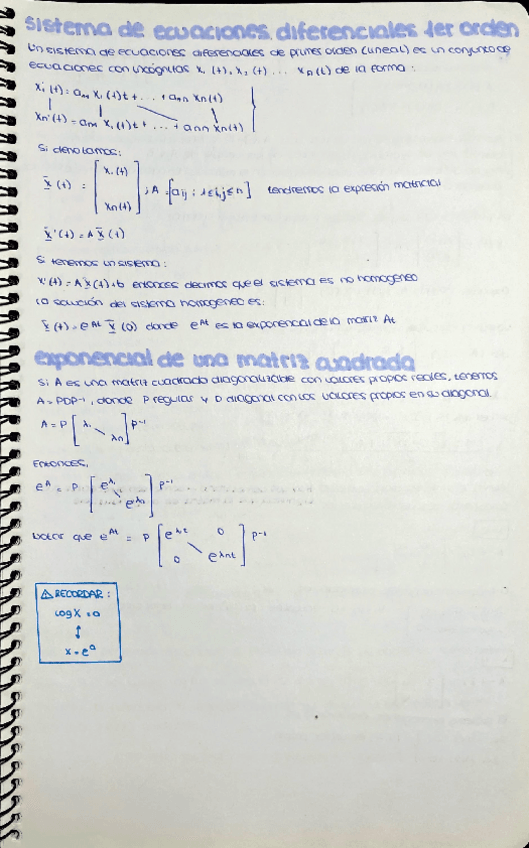 sistema de ecuaciones diferenciales 1er orden
Un sistema de ecuaciones diferenciales de primer orden (lineal) es un conjunto de
ecuaciones con incógnitas x₁(t), x₂(t) ... xn(t) de la forma:
x₁'(t) = a₁₁ x₁(t)t + ... + a₁n xn(t)
xn'(t) = an₁ x₁(t)t + ... + ann xn(t)
Si denotamos:
x(t) = [x₁(t) xn(t)] ; A = [aij : 1≤i,j≤n] tendremos la expresión matricial
x'(t) = A x(t)
Si tenemos un sistema:
x'(t) = A x(t) + b entonces decimos que el sistema es no homogeneo
La solución del sistema homogeneo es:
x(t) = e^At x(0) donde e^At es la exponencial de la matriz At
exponencial de una matriz cuadrada
Si A es una matriz cuadrada diagonalizable con valores propios reales, tenemos
A = PDP⁻¹, donde P regular y D diagonal con los valores propios en su diagonal.
A = P [λ₁ λn] P⁻¹
Entonces,
e^A = P [e^λ₁ e^λn] P⁻¹
Notar que e^At = P [e^λ₁t 0 0 e^λnt] P⁻¹
⚠ RECORDAR:
log x = a
↕
x = e^a